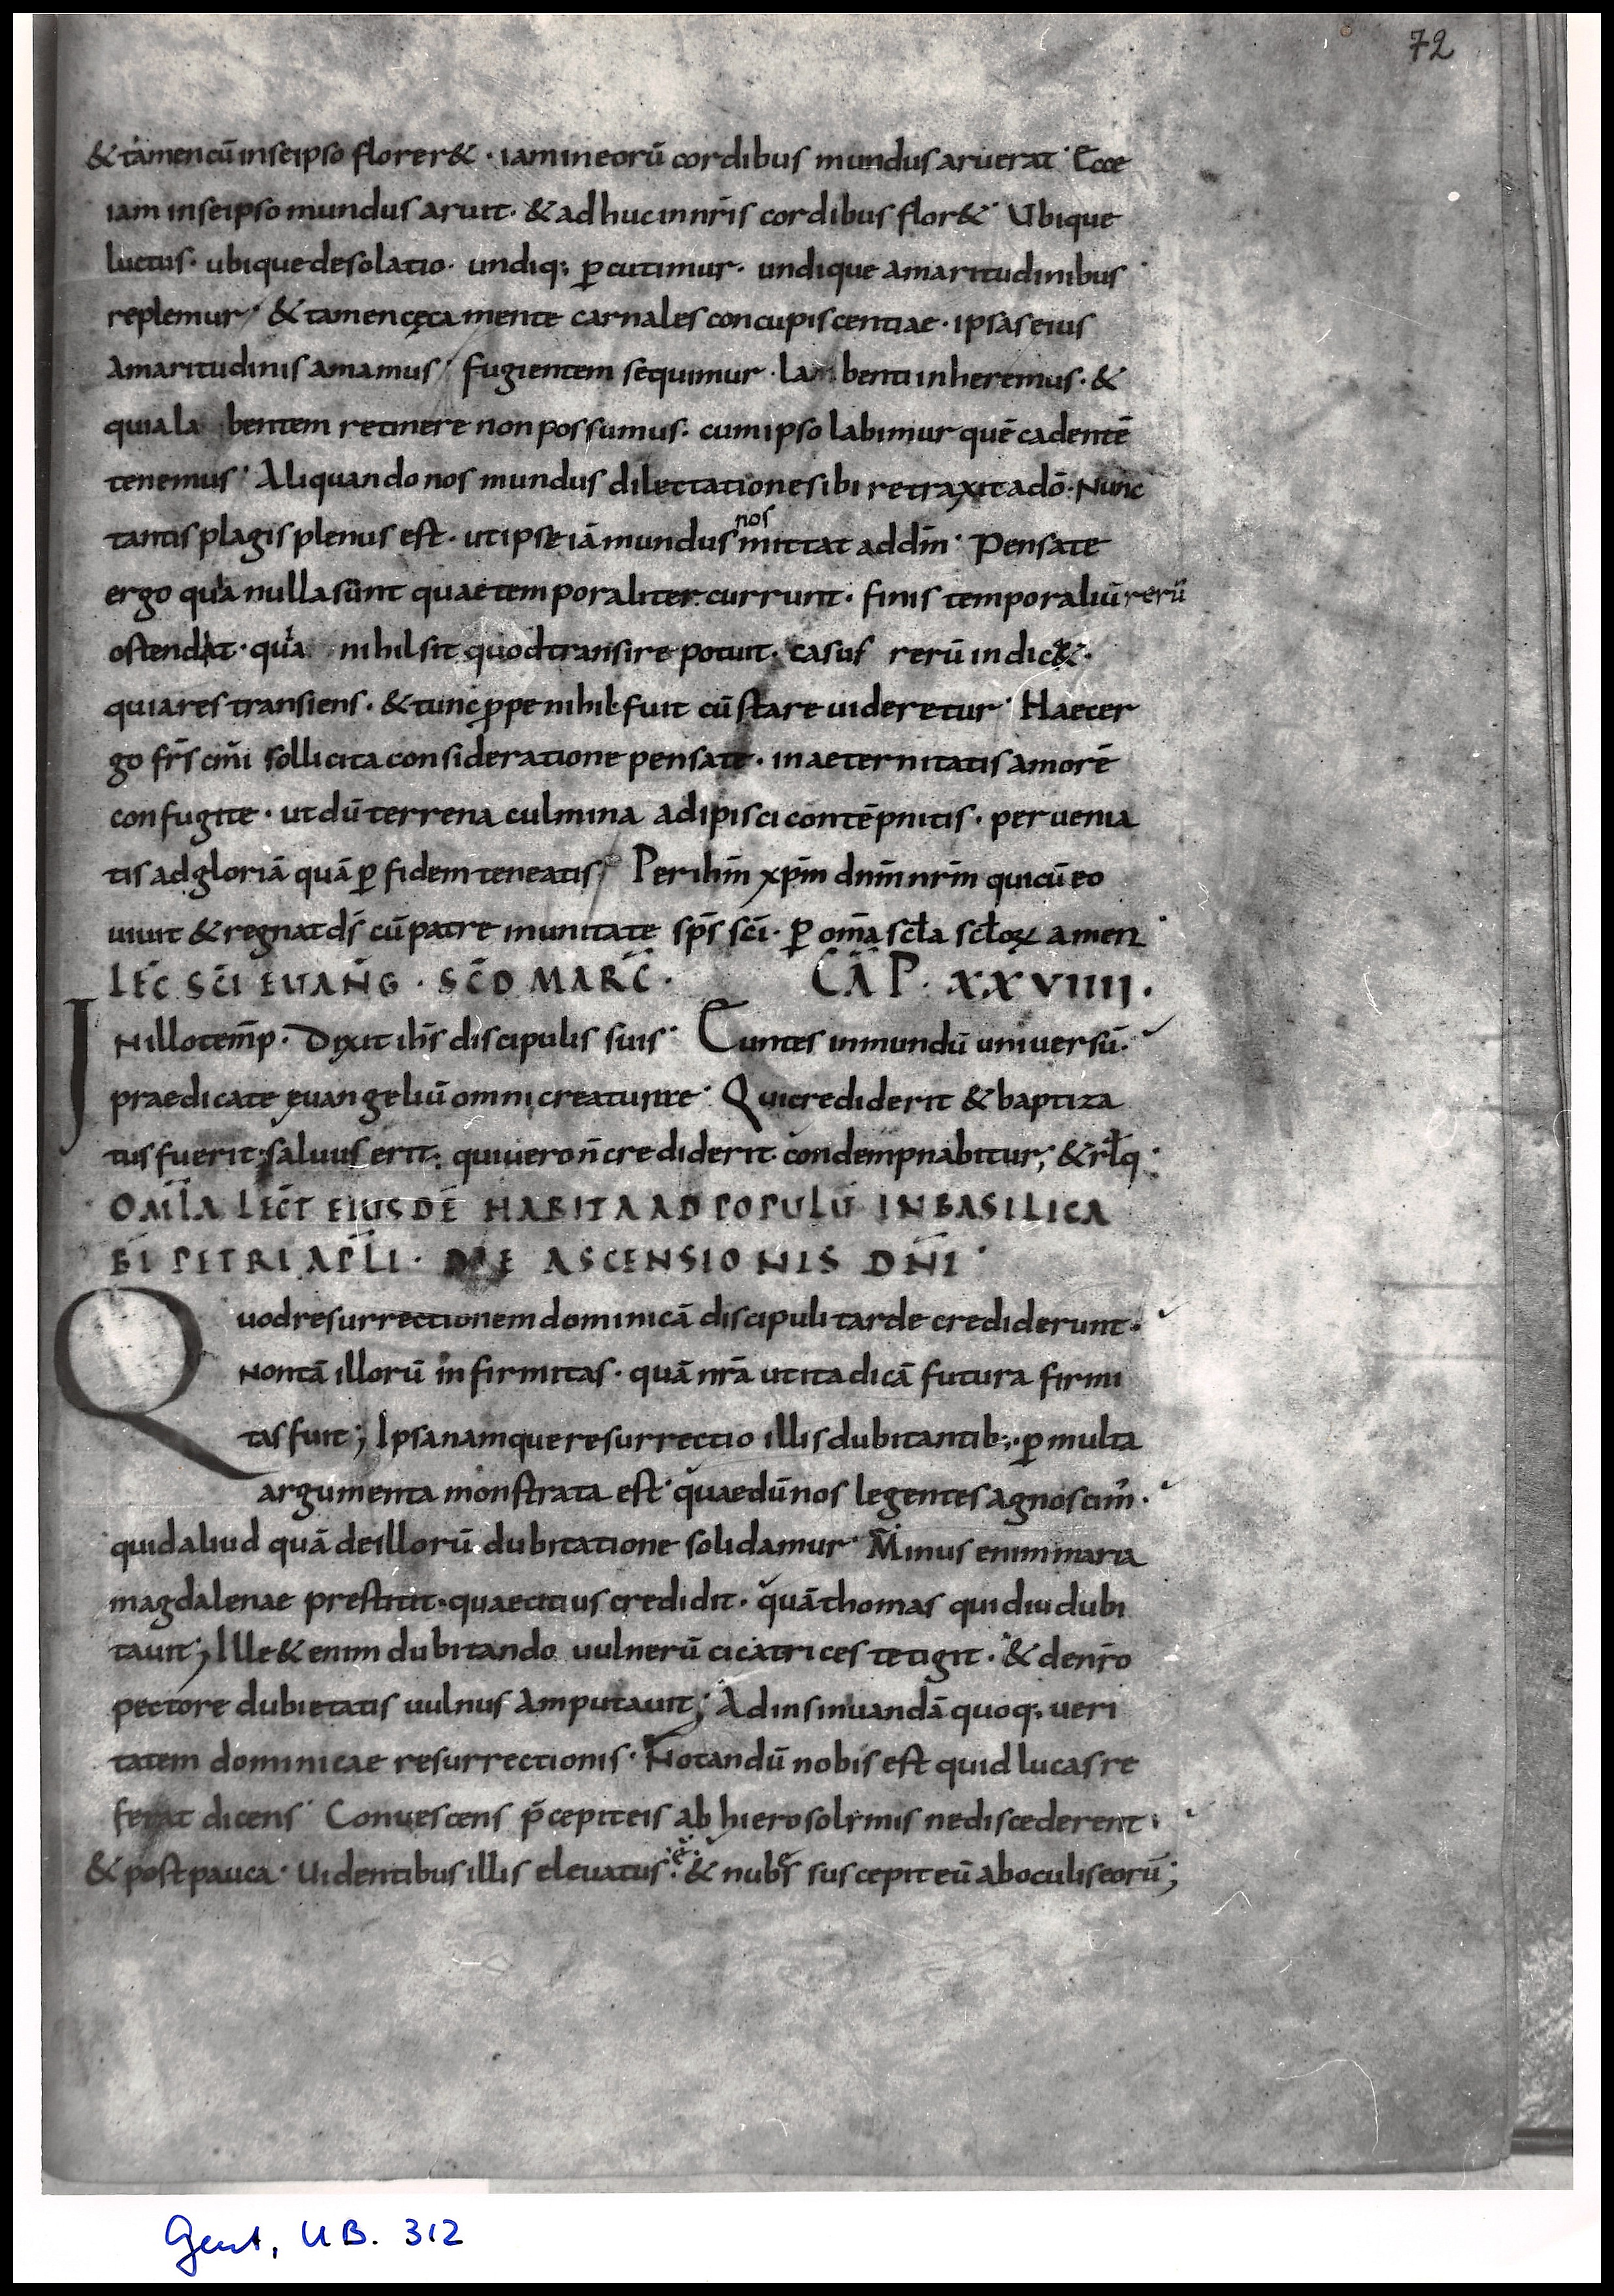 72
& tamen cū in se ipso florer& · iam in eorū cordibus mundus aruerat· Ecce
iam in se ipso mundus aruit· & adhuc in nr̄is cordibus flor&· Ubique
luctus· ubique desolatio· undiq; ꝑcutimur· undique amaritudinibus
replemur· & tamen cęca mente carnales concupiscentiae· ipsas eius
amaritudinis amamus· fugientem sequimur· labenti inheremus· &
quia labentem retinere non possumus· cum ipso labimur quē cadentē
tenemus· Aliquando nos mundus dilectatione sibi retraxit a dō· Nunc
tantis plagis plenus est· ut ipse iā mundus nos mittat ad dm̄· Pensate
ergo quia nulla sunt quae temporaliter currunt· finis temporaliū rerū
ostendat· quia nihil sit quod transire potuit· casus rerū indic&·
quia res transiens· & tunc ꝓpe nihil fuit cū stare uideretur· Haec er
go fr̄s cm̄i sollicita consideratione pensate· in aeternitatis amorē
confugite· ut dū terrena culmina adipisci contēpnitis· peruenia
tis ad gloriā quā ꝑ fidem teneatis· Per ihm̄ xpm̄ dnm̄ nrm̄ qui cū eo
uiuit & regnat ds̄ cū patre in unitate sp̄s sc̄i· ꝑ om̄a scl̄a scl̄oꝝ amen
LEC̄ SC̄I EUANḠ · SC̄D MARC̄ · CAP̄ · XXVIIII ·
IN illo temp̄· Dixit ih̄s discipulis suis· Euntes in mundū uniuersū·
praedicate euangeliū omni creaturae· Qui crediderit & baptiza
tus fuerit saluus erit· qui uero n̄ crediderit condempnabitur; & rl̄q·
OML̄A LECT̄ EIUSDĒ HABITA AD POPULŪ IN BASILICA
BĪ PETRI APL̄I · DIE ASCENSIONIS DN̄I·
Quod resurrectionem dominicā discipuli tarde crediderunt·
non tā illorū infirmitas· quā nr̄a ut ita dicā futura firmi
tas fuit; Ipsa namque resurrectio illis dubitantib;· ꝑ multa
argumenta monstrata est· quae dū nos legentes agnoscim̄·
quid aliud quā de illorū dubitatione solidamur· Minus enim maria
magdalenae prestitit· quae citius credidit· quā thomas qui diu dubi
tauit; Ille & enim dubitando uulnerū cicatrices tetigit· & de nr̄o
pectore dubietatis uulnus amputauit; Ad insinuandā quoq; ueri
tatem dominicae resurrectionis· Notandū nobis est quid lucas re
ferat dicens· Conuescens p̄cepit eis ab hierosolimis ne discederent·
& post pauca· Uidentibus illis eleuatus ē· & nubes suscepit eū ab oculis eorū;
Gent, UB. 312